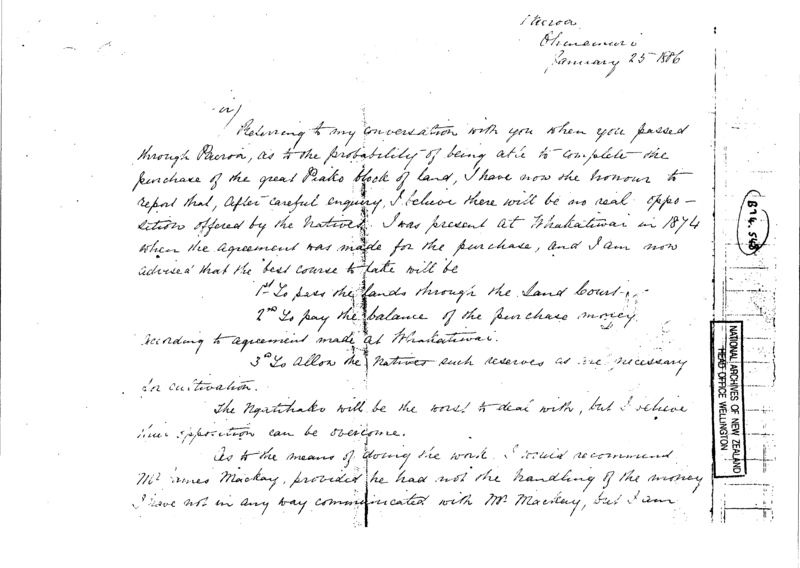 Paeroa
Ohinemuri
January 25 1886
Sir/
Referring to my conversation with you when you passed
through Paeroa, as to the probability of being able to complete the
purchase of the great Piako block of land, I have now the honour to
report that, after careful enquiry, I believe there will be no real oppo-
sition offered by the Natives. I was present at Whakatiwai in 1874
when the agreement was made for the purchase, and I am now
advised that the best course to take will be
1st To pass the lands through the Land Court.
2nd To pay the balance of the purchase money
according to agreement made at Whakatiwai.
3d To allow the Natives such reserves as are necessary
for cultivation.
The Ngatihako will be the worst to deal with, but I believe
their opposition can be overcome.
As to the means of doing the work I would recommend
Mr James Mackay, provided he had not the handling of the money
I have not in any way communicated with Mr Mackay, but I am
NATIONAL ARCHIVES OF NEW ZEALAND
HEAD OFFICE WELLINGTON